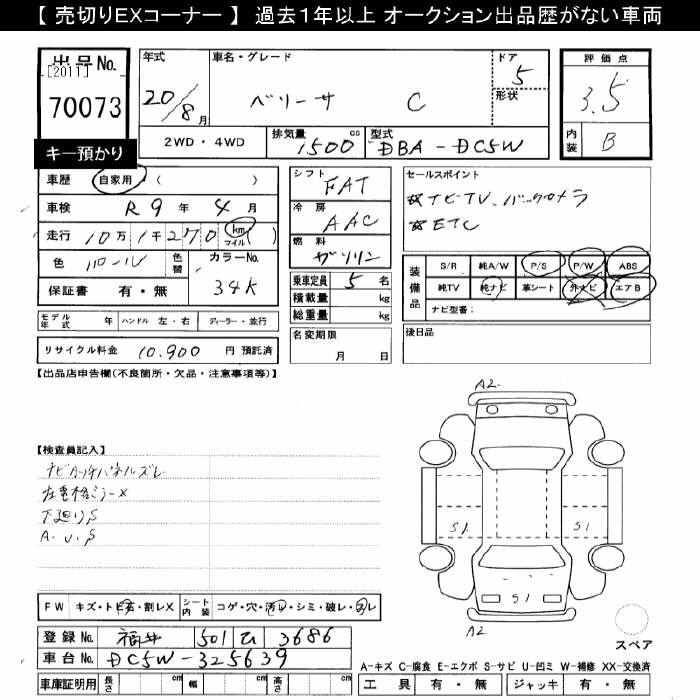 【 売切りEXコーナー 】 過去1年以上 オークション出品歴がない車両
出品No.
[2011]
70073
キー預かり
年式
20/8月
車名・グレード
ベリーサ C
ドア
5
形状
2WD・4WD
排気量
1500 cc
型式
DBA-DC5W
評価点
3.5
内装
B
車歴 自家用・( )
車検 R9年4月
走行 10万1千270 km マイル ( )
色
色替
カラーNo.
34K
保証書 有・無
シフト
FAT
冷房
AAC
燃料
ガソリン
乗車定員 5 名
積載量 kg
総重量 kg
セールスポイント
☆ナビTV、バックカメラ
☆ETC
装備品
S/R 純A/W P/S P/W ABS
純TV 純ナビ 革シート 外ナビ エアB
ナビ型番:
モデル年式 年 ハンドル 左・右 ディーラー・並行
リサイクル料金 10,900 円 預託済
名変期限
月 日
後日品
【出品店申告欄(不良箇所・欠品・注意事項等)】
【検査員記入】
ナビタッチパネルズレ
左電格ミラーX
下廻りS
A.U.S
A2
S1
S1
S1
A2
スペア
FW キズ・トビ石・割レX
シート内装 コゲ・穴・汚レ・シミ・破レ・スレ
登録No. 福井 501 3686
車台No. DC5W-325639
車庫証明用 長さ cm 幅 cm 高さ cm
A-キズ C-腐食 E-エクボ S-サビ U-凹ミ W-補修 XX-交換済
工具 有・無 ジャッキ 有・無